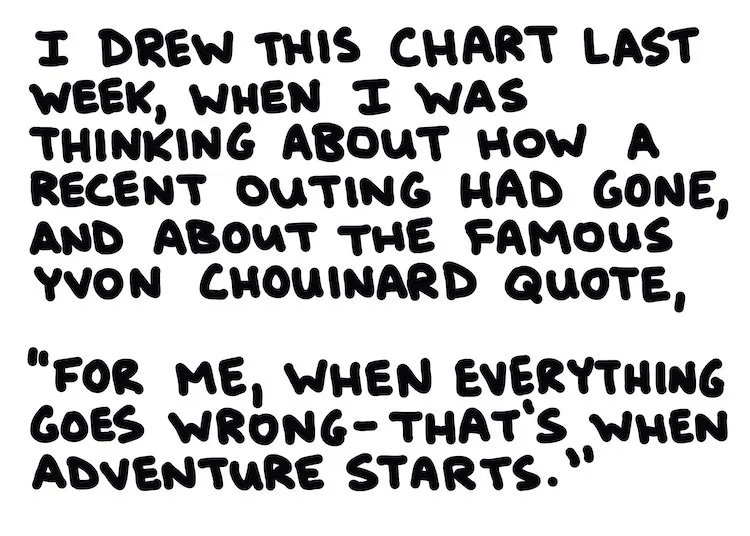 I DREW THIS CHART LAST
WEEK, WHEN I WAS
THINKING ABOUT HOW A
RECENT OUTING HAD GONE,
AND ABOUT THE FAMOUS
YVON CHOUINARD QUOTE,
"FOR ME, WHEN EVERYTHING
GOES WRONG-THAT'S WHEN
ADVENTURE STARTS."